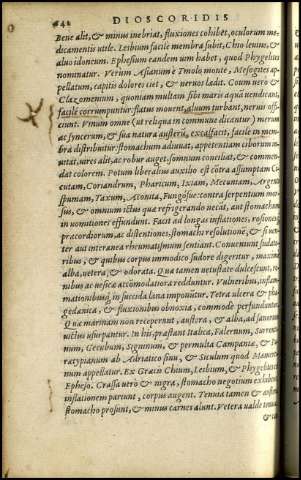 642 DIOSCORIDIS
Bene alit, & minus inebriat, fluxiones cohibet, oculorum me-
dicamentis utile. Lesbium facile membra subit, Chio leuius, &
aluo idoneum. Ephesium eandem uim habet, quod Phygelites
nominatur. Verum Asianum è Tmolo monte, Mesogites ap-
pellatum, capitis dolores ciet, & neruos lædit. Coum uerò &
Clazomenium, quoniam multum sibi maris aquæ uendicant,
facilè corrumpuntur: flatus mouent, aluum turbant, neruis offi-
ciunt. Vinum omne (ut reliqua in commune dicantur) merum
ac syncerum, & sua natura austerũ, excalfacit, facilè in mem-
bra distribuitur: stomachum adiuuat, appetentiam ciborum in-
uitat, uires alit, ac robur auget: somnum conciliat, & commen-
dat colorem. Potum liberalius auxilio est contra assumptam Ci-
cutam, Coriandrum, Pharicum, Ixiam, Meconium, Argenti
spumam, Taxum, Aconita, Fungosue: contra serpentum mor-
sus, & omnium ictus qui refrigerando necãt, aut stomachum
in uomitiones effundunt. Facit ad longas inflationes, rosiones
præcordiorum, ac distentiones, stomachi resolutionẽ, & si uen-
ter aut interanea rheumatismum sentiant. Conueniunt sudato-
ribus, & quibus corpus immodico sudore digeritur, maximè
alba, uetera, & odorata. Quæ tamen uetustate dulcescunt, re-
nibus ac uesicæ accommodatiora redduntur. Vulneribus, inflam-
mationibusq́ in succida lana imponitur. Tetra ulcera & pha-
gedænica, & fluxionibus obnoxia, commodè perfunduntur.
Quæ marinam non receperunt, austera, & alba, ad sanorum
uictus usurpantur. In his præstant Italica, Falernum, Surrenti-
num, Cæcubum, Signinum, & permulta Campaniæ, & Præ-
rutypianum ab Adriatico sinu, & Siculum quod Mamerti-
num appellatur. Ex Græcis Chium, Lesbium, & Phygeliten
Epheso. Crassa uerò & nigra, stomacho negotium exhibent,
inflationem pariunt, corpus augent. Tenuia tamen & austera
stomacho prosunt, & minus carnes alunt. Vetera ualde tenuia